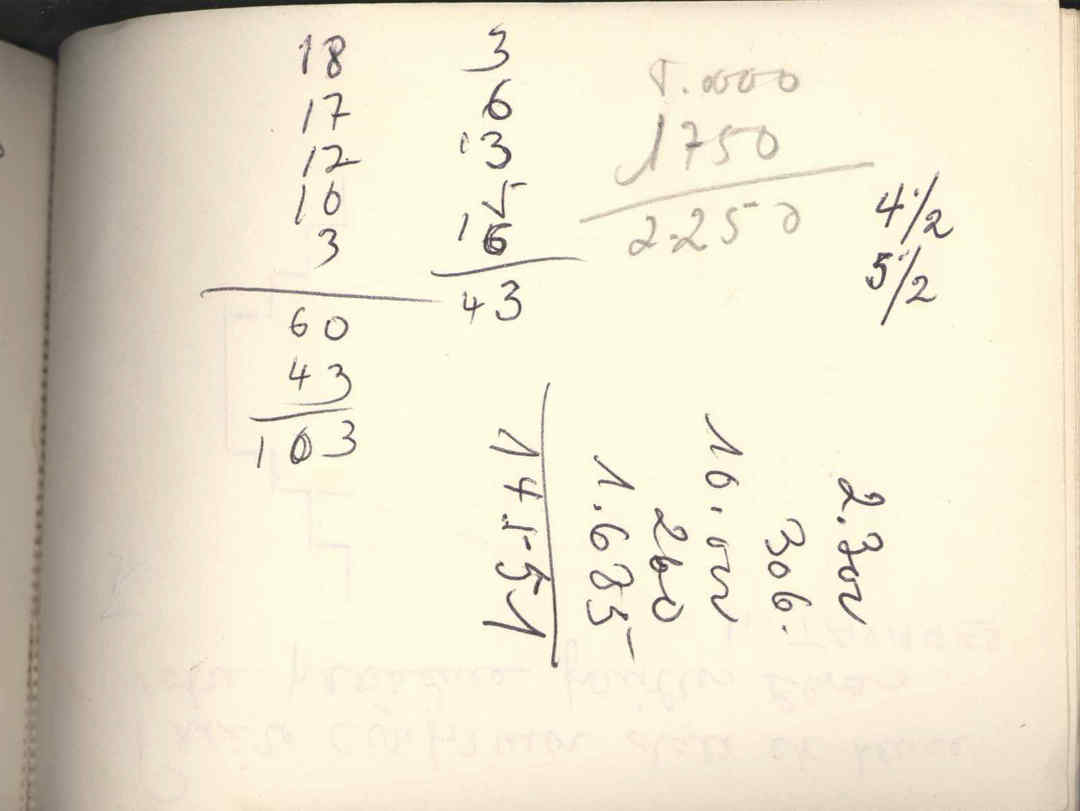 18
17
12
10
3
60
43
103
3
6
13
5
16
43
5.000
1750
2.250
4 1/2
5 1/2
2.300
306.
10.000
260
1.685
14.551